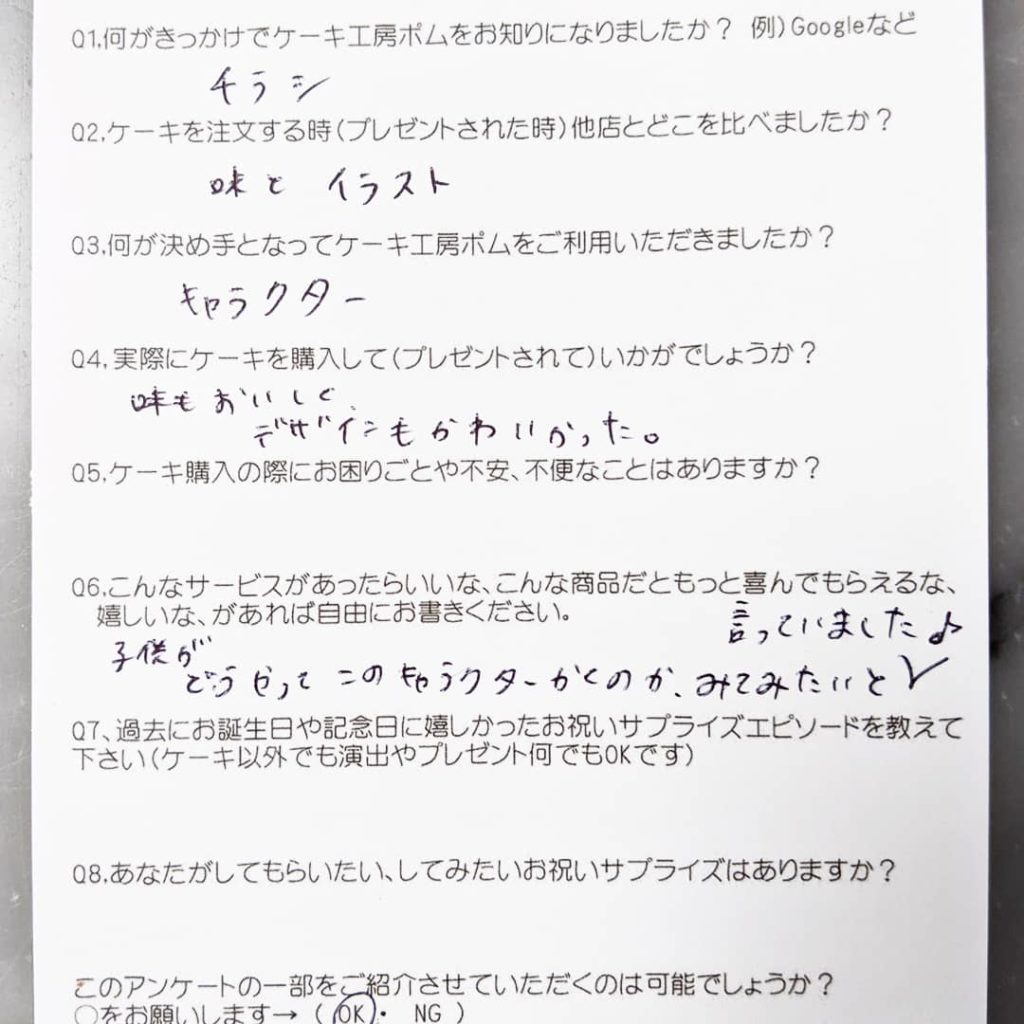 Q1.何がきっかけでケーキ工房ポムをお知りになりましたか? 例)Googleなど
チラシ
Q2.ケーキを注文する時(プレゼントされた時)他店とどこを比べましたか?
味と イラスト
Q3.何が決め手となってケーキ工房ポムをご利用いただきましたか?
キャラクター
Q4.実際にケーキを購入して(プレゼントされて)いかがでしょうか?
味もおいしく
デザインもかわいかった。
Q5.ケーキ購入の際にお困りごとや不安、不便なことはありますか?
Q6.こんなサービスがあったらいいな、こんな商品だともっと喜んでもらえるな、
嬉しいな、があれば自由にお書きください。
子供が
どうやって このキャラクターかくのか、みてみたいと
言っていました♪
Q7、過去にお誕生日や記念日に嬉しかったお祝いサプライズエピソードを教えて
下さい(ケーキ以外でも演出やプレゼント何でもOKです)
Q8.あなたがしてもらいたい、してみたいお祝いサプライズはありますか?
このアンケートの一部をご紹介させていただくのは可能でしょうか?
○をお願いします→ ( OK ・ NG )